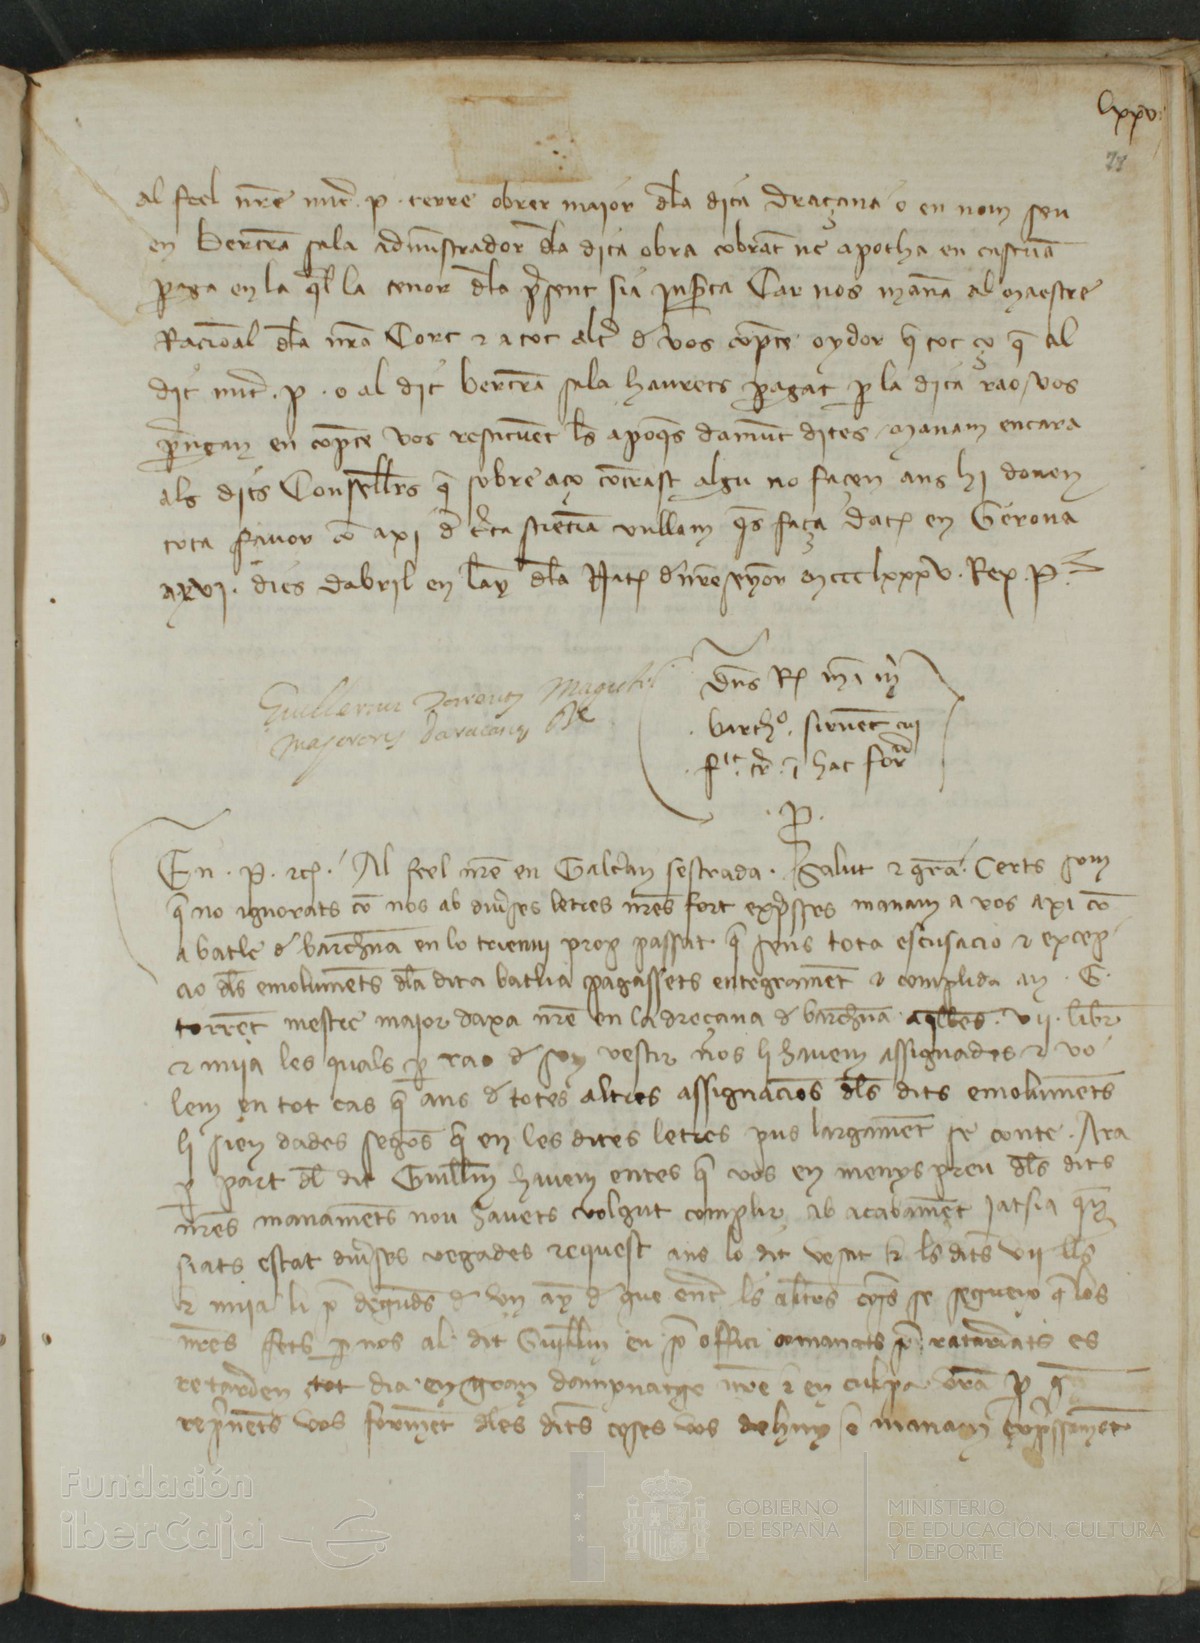 lxxv.
77
al feel nr̃e mic̃ . p . terre obrer maior d̃la dita Draçana o en nom seu
en Bertrã sala administrador d̃la dita obra cobrãt ne apotha en
paga en la q̃l la tenor d̃la p̃sent sia Car nos manã al maestre
Racional d̃la nr̃a Cort ⁊ a tot altr̃ de vos cõpte oydor q̃ tot ço q̃ al
dit mic̃ . p . o al dit bertrã sala haurets pagat p la dita rao vos
p̃ngan en cõpte vos restituẽt l̃s apoq̃s damũt dites manam encara
als dits Consellers q̃ sobre aço cõtrast algu no façen ans hi donen
tota favor cõ axi d̃ c̃ta sciẽcia vullam q̃s faça dat̃ en Gerona
xxvi . dies dabril en l̃ay d̃la Nat̃ d̃ nr̃e senyor mccclxxxv . Rex . P.
Dñs Rex mã m̃
barth̃o . siruẽt
. tr̃ . ĩ hac formã
. P .
En . P . ⁊c̃ . Al feel nr̃e en Galcerãn sestrada . Salut ⁊ gr̃a . Certs som
q̃ no ignorats cõ nos ab diũses letres nr̃es fort exp̃sses manam a vos axi cõ
a batle de barchñna en lo trienni prop passat q̃ sens tota escusacio ⁊ excep
cio d̃ls emolumẽts d̃la dita batlia pagassets entegramẽt ⁊ complida an . G .
torrẽt mestre major daxa nr̃e en la dreçana de barchñna aq̃lles . vii . libr̃
⁊ mija les quals p rao de son vestir nos li havem assignades ⁊ vo
lem en tot cas q̃ ans de totes altres assignacions d̃ls dits emolumẽts
li sien dades segõs q̃ en les dites letres pus largamẽt se conte . Ara
p part d̃l dit Guillm̃ havem entes q̃ vos en menyspreu d̃ls dits
nr̃es manamẽts nou havets volgut complir ab acabamẽt jatsia q̃n
siats estat diũses vegades request ans lo dit vestit ⁊ l̃s dits vii ll̃s
⁊ mija li de vn ay de que l̃s altres se
nr̃es fets p nos al dit Guillm̃ en offici comanats es
retarden tot dia en gran dampnatge nr̃e ⁊ en culpa vr̃a p
rep̃nẽts vos formẽt d̃les dits coses vos dehim e manam exp̃ssamẽt
Fundación
iberCaja
GOBIERNO
DE ESPAÑA
MINISTERIO
DE EDUCACIÓN, CULTURA
Y DEPORTE